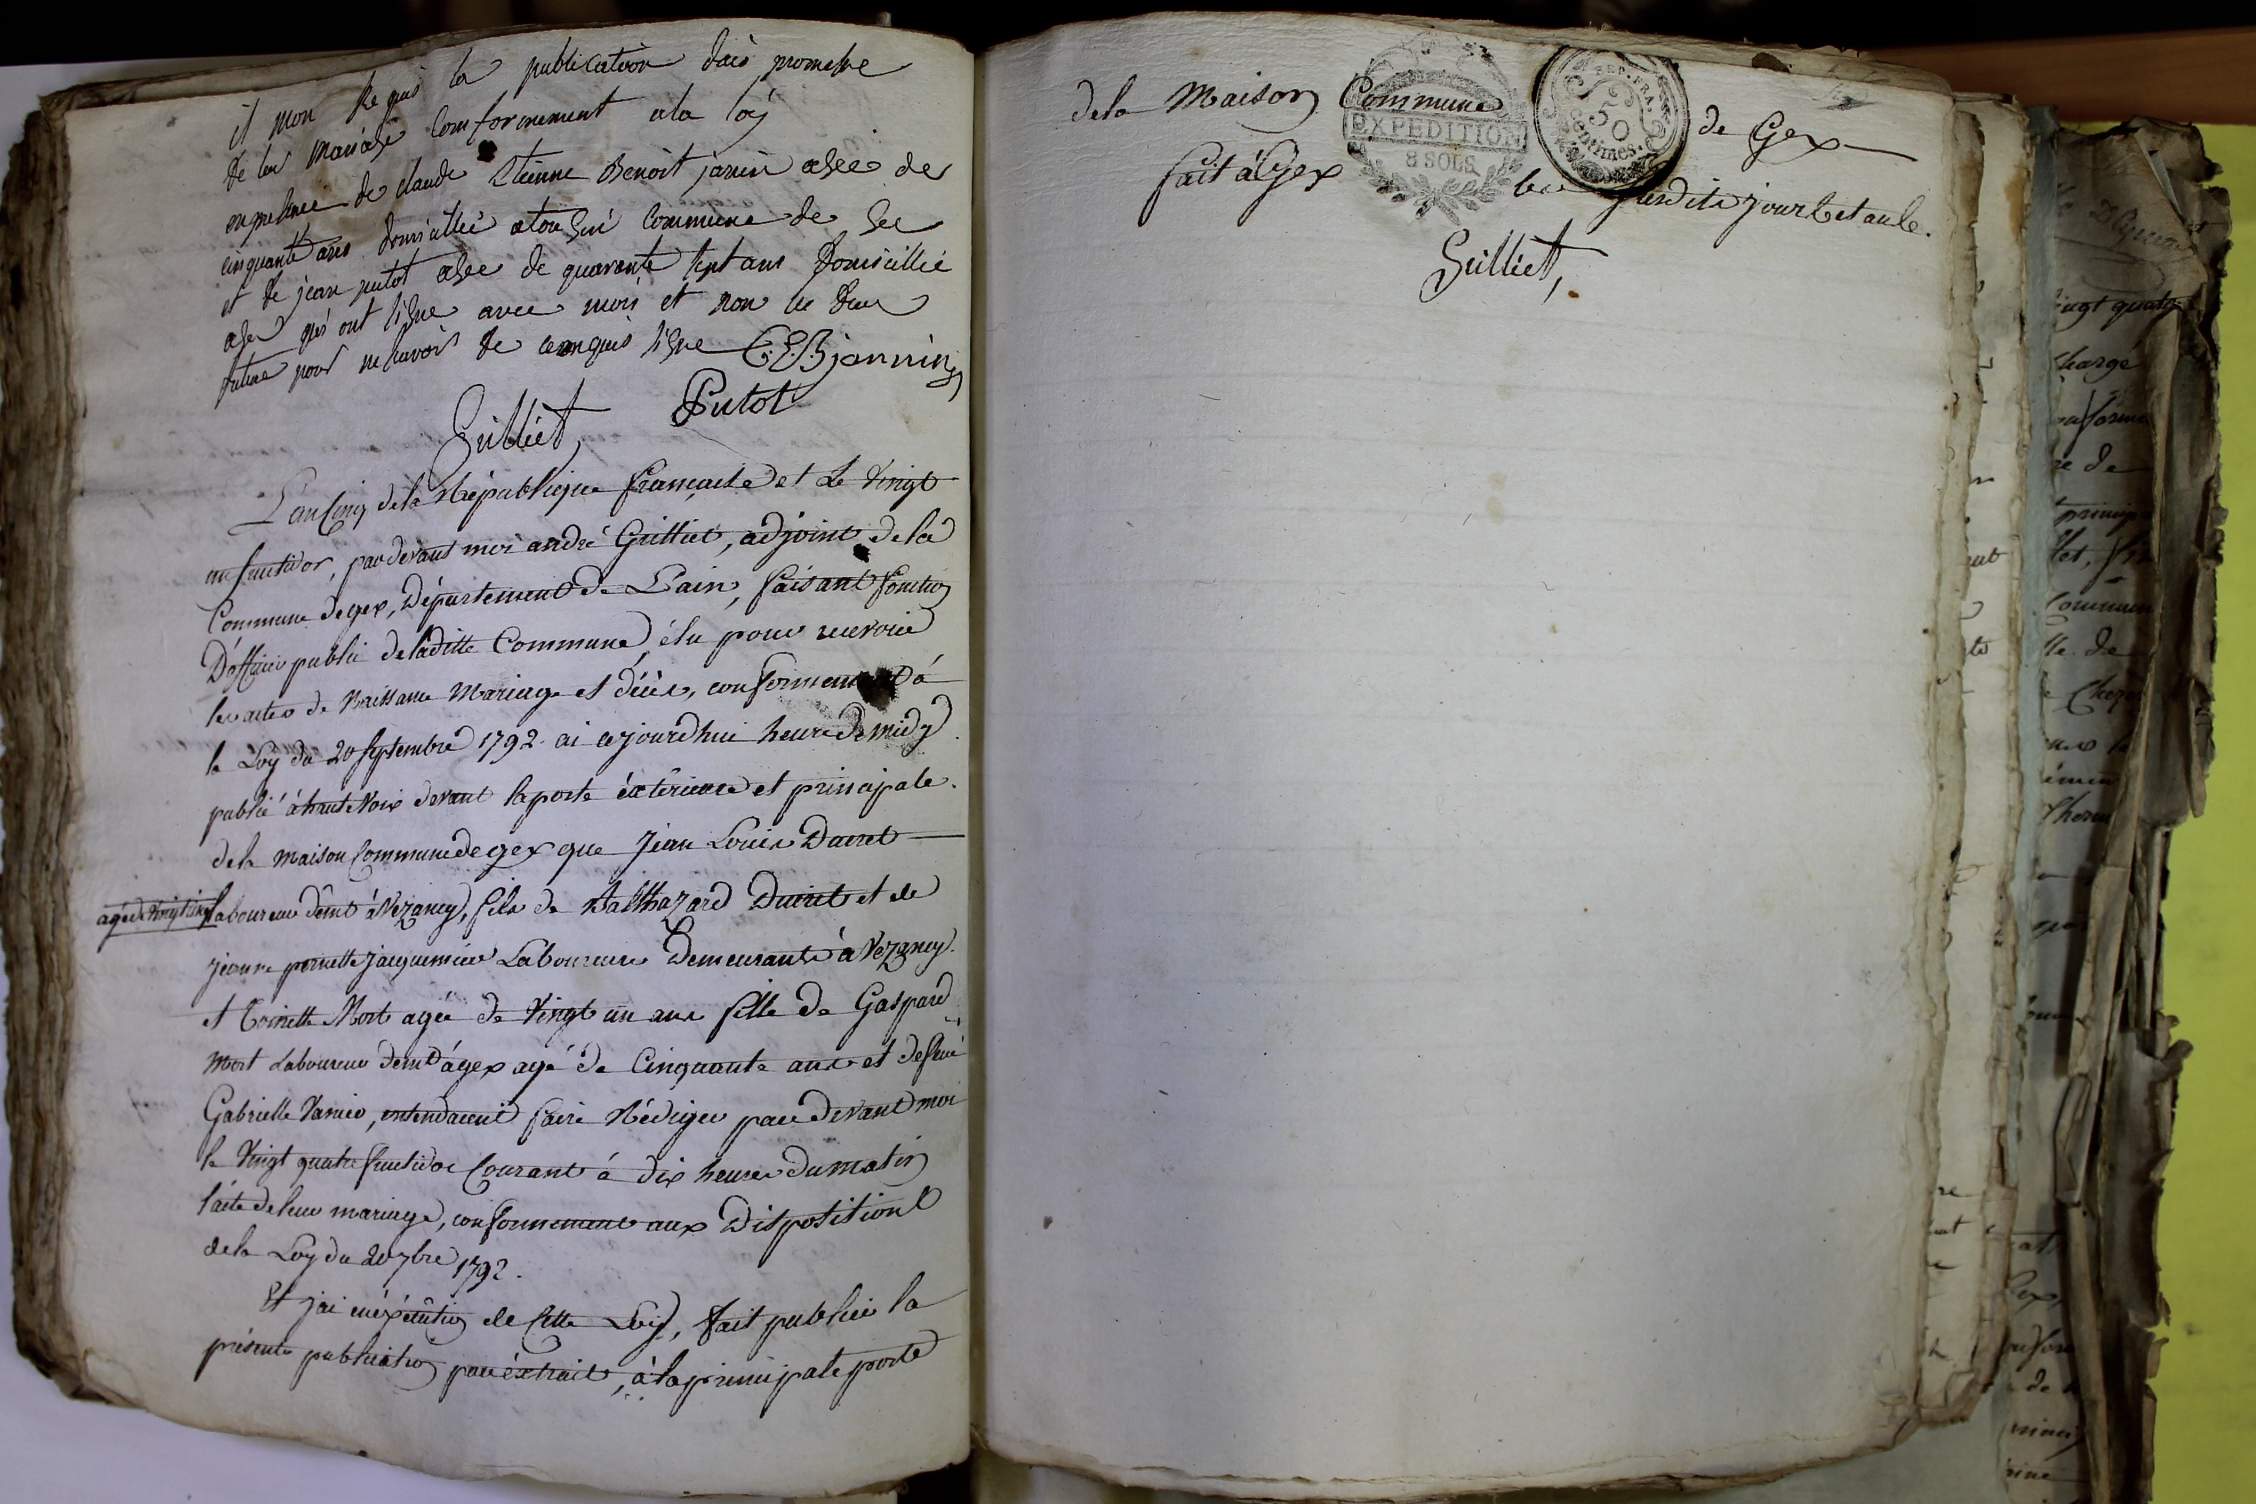 il mon Requis la publication dais promesse
de leu mariage Comformement a la loÿ
en presence de claude Etienne Benoit janin agée de
cinquante ans domicillié a tougin Commune de Gex
et de jean putot agée de quarente sept ans domicillié
a gex qui ont signe avec mois et non le deux
future pour ne savoir de ce requis signe C. E. B. jannin
Putot
Gilliet,
L'an Cinq de la République française et Le Vingt
un fructidor, par devant moi andré Gilliet, adjoint de la
Commune de gex, Département de L'ain, faisant fonction
D'officier public de laditte Commune, élu pour recevoir
les actes de Naissance Mariage et décès, conformement á
la Loy du 20 Septembre 1792. ai ce jourd'hui heure de midy
publié á haute Voix devant la porte éxterieure et principale.
de la maison Commune de gex que Jean Louis Duret
agé de Vingt cinq
laboureur demt á Vezancy, fils de Balthazard Duret et de
jeanne pernette jacquemier Laboureurs Demeurants á Vezancy.
et Toinette Mort agée de Vingt un ans fille de Gaspard
Mort Laboureur demt á gex agé de Cinquante ans et de feue
Gabrielle, entendaient faire Rédiger par devant moi
le Vingt quatre fructidor Courant á dix heures du matin
l'acte de leur mariage, conformement aux Dispositions
de la Loy du 20 7bre 1792.
Et j'ai en éxécution de cette Loy, fait publier la
présente publication par éxtrait, á la principale porte
de la Maison Commune de Gex
EXPEDITION
8 SOLS
REP. FRA.
50
centimes.
fait á Gex les susdits jour et an le.
Gilliet,